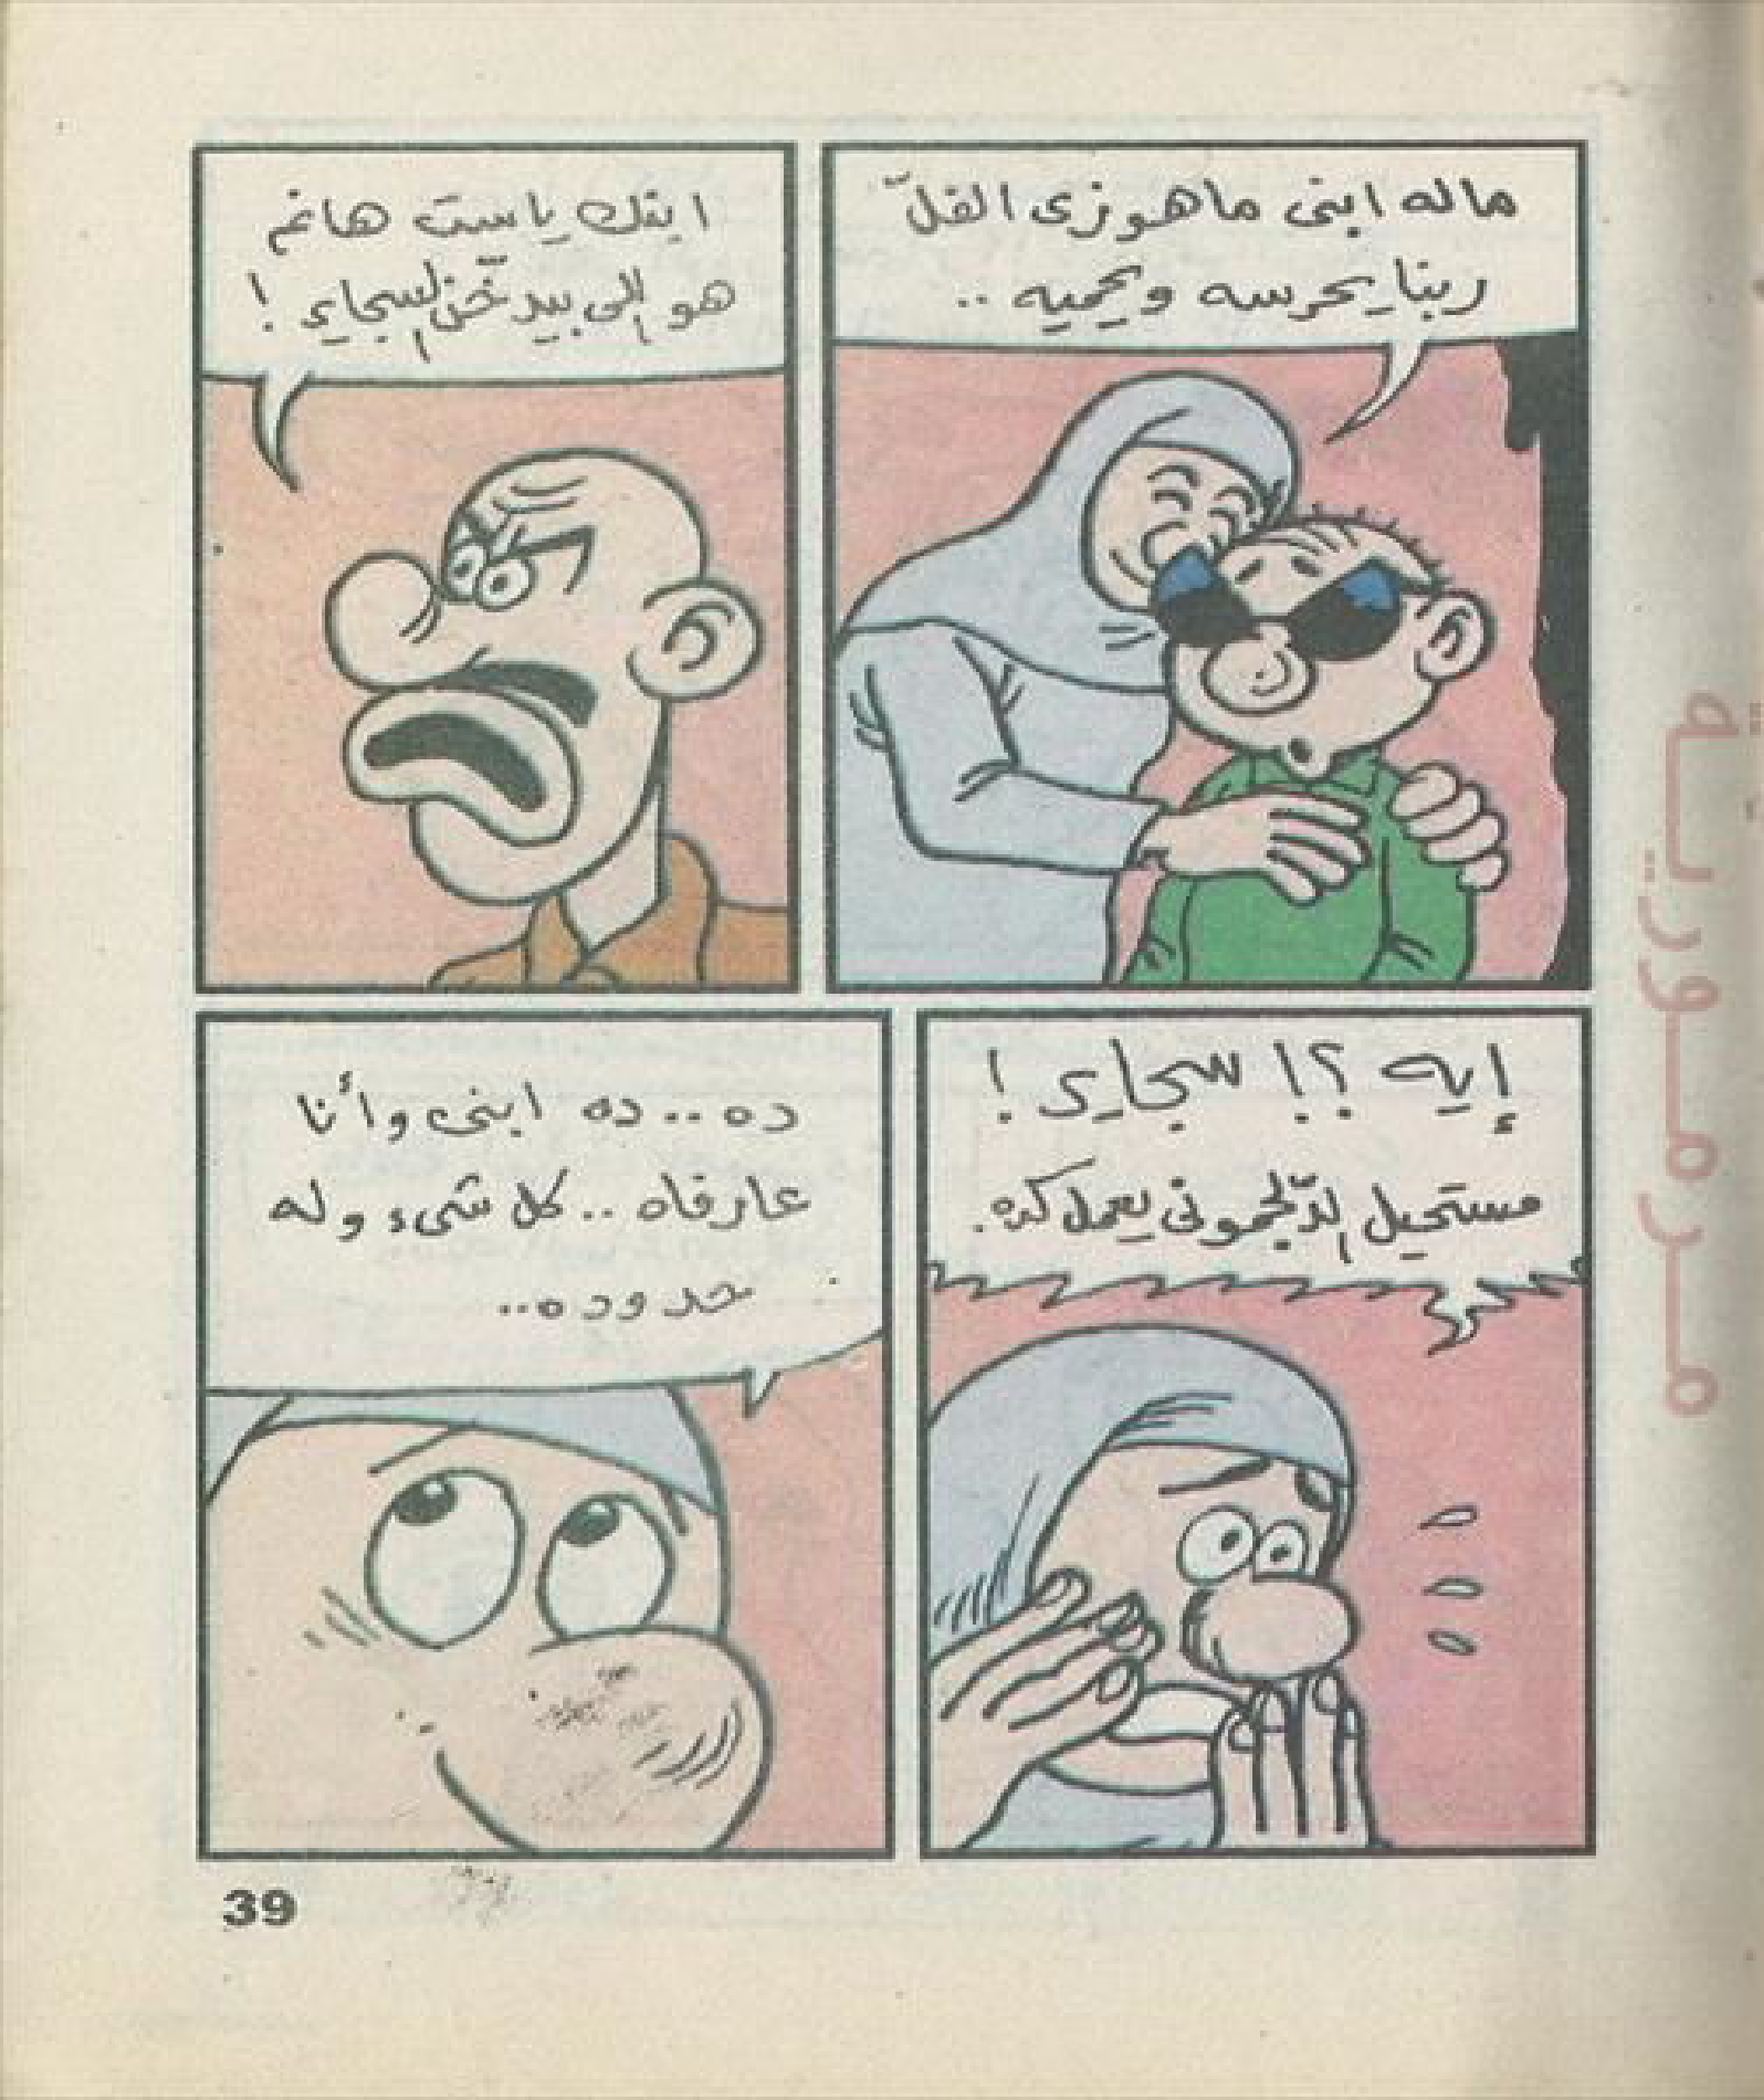 ماله ابنى ماهو زى الفلّ
ربنا يحرسه ويحميه ..
ابنك يا ست هانم
هو إللى بيدخّن السجاير !
إيه ؟! سجاير !
مستحيل الدّلجمونى يعمل كده .
ده .. ده ابنى وأنا
عارفاه .. كل شىء وله
حدوده ..
39